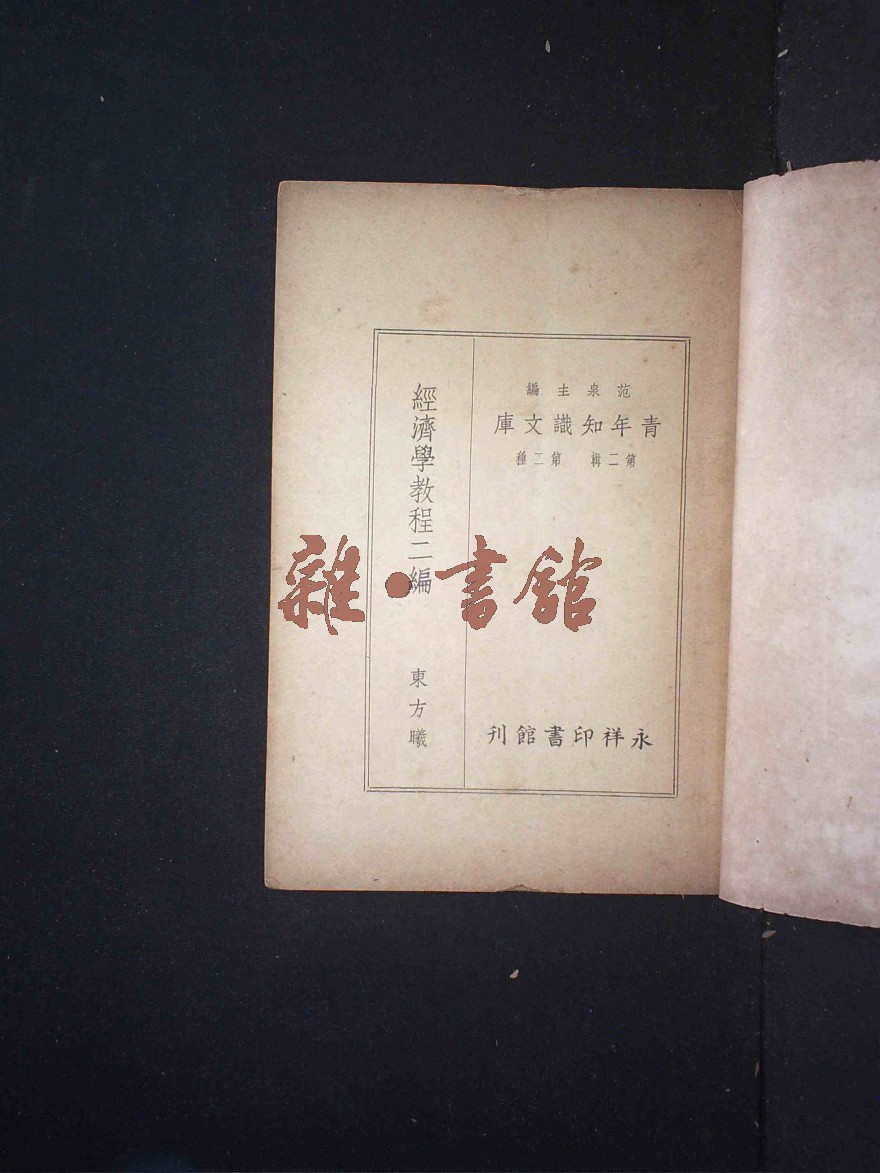 范泉主編
青年知識文庫
第二輯 第二種
永祥印書館刊
經濟學教程二編
東方曦
雜·書館